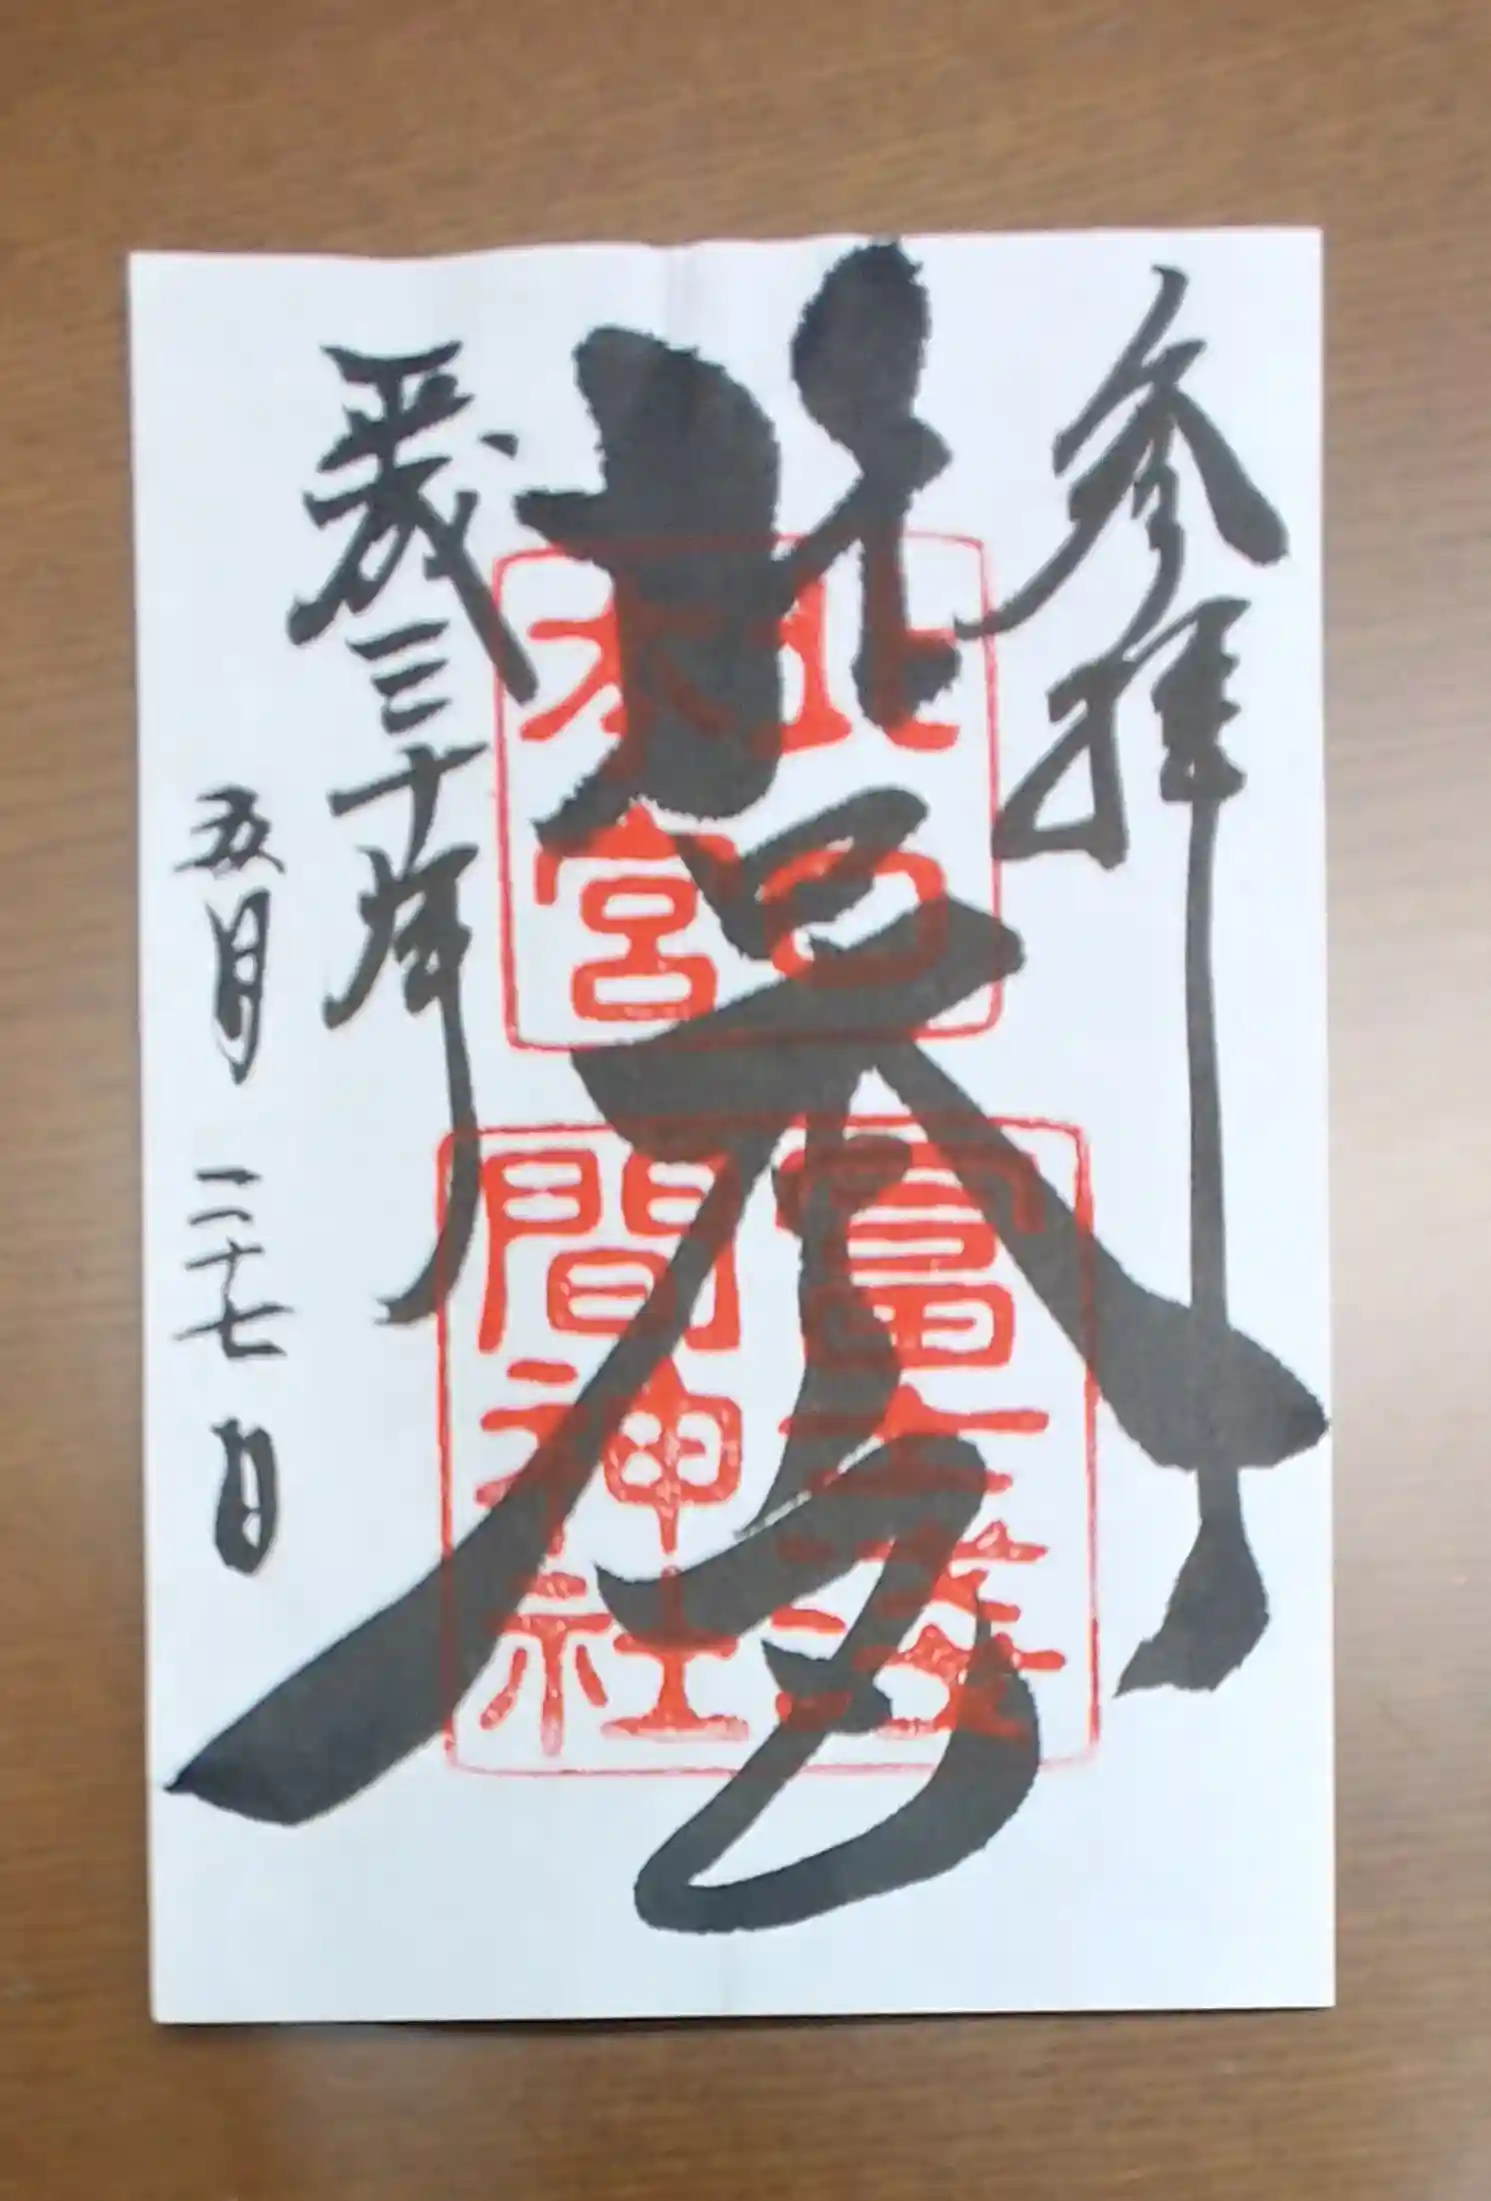 参拝
北口本宮
北口
本宮
冨士浅
間神社
平成三十年
五月二十七日